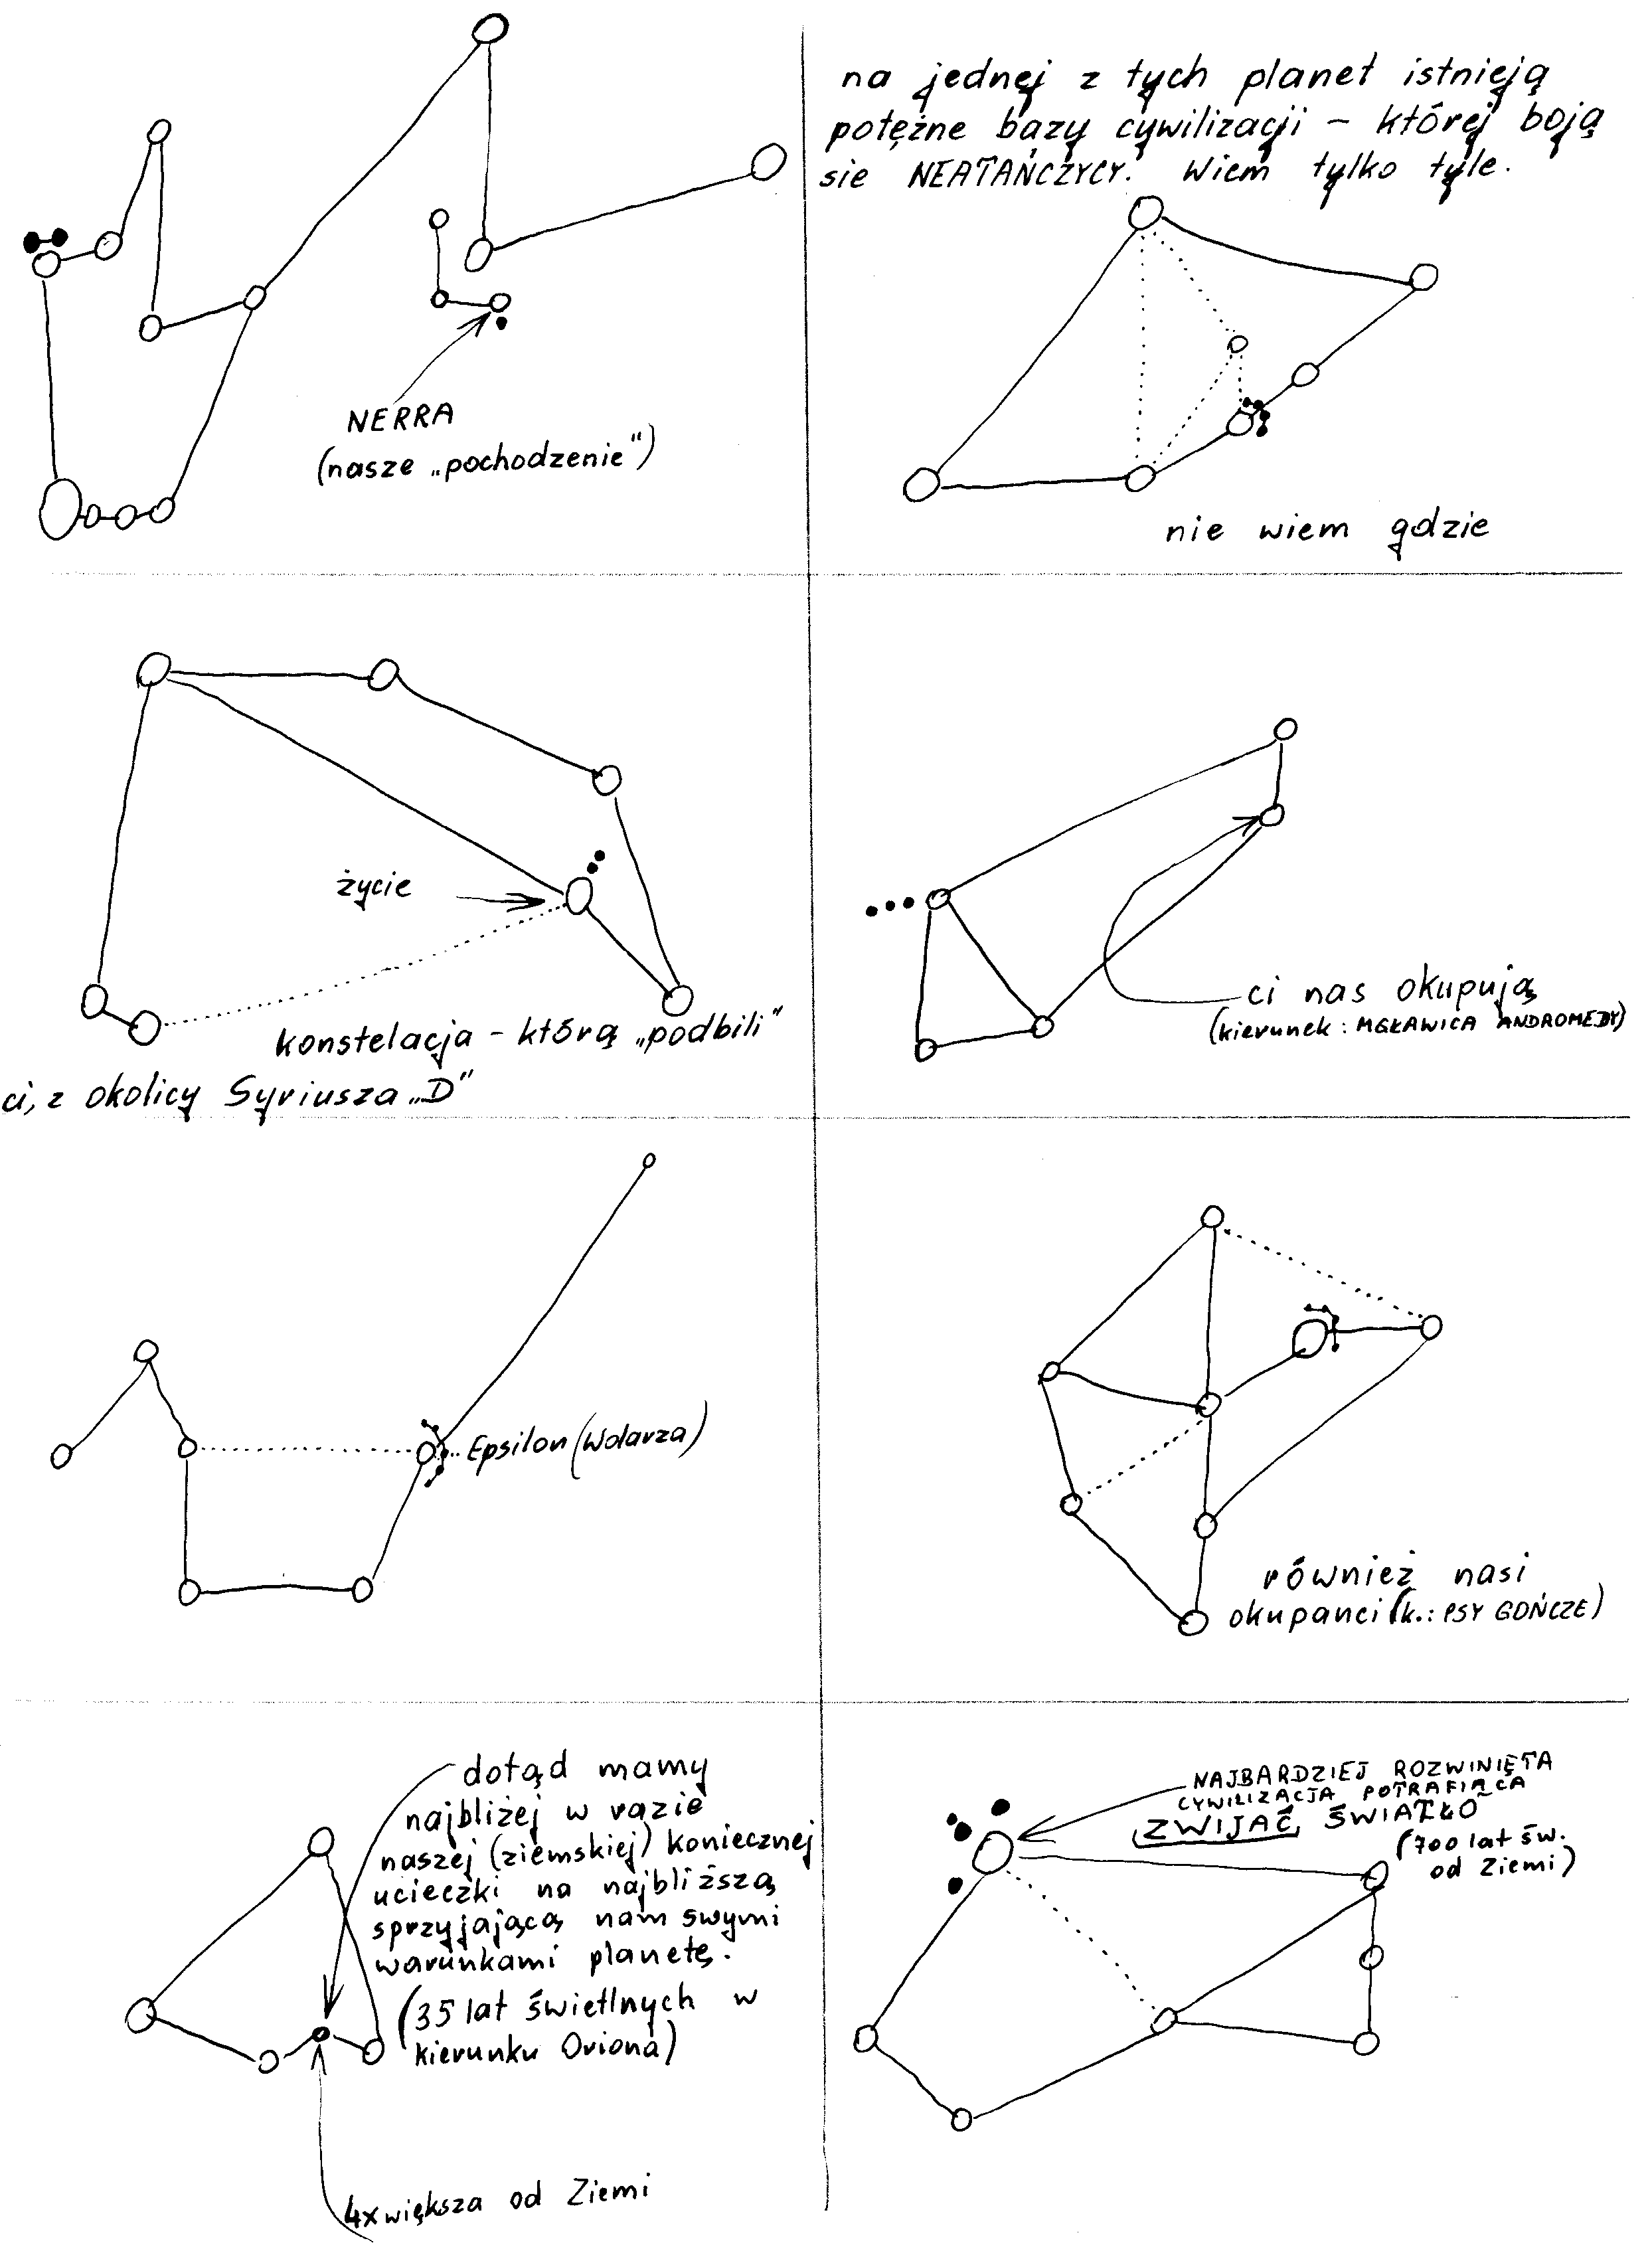 NERRA
(nasze „pochodzenie")
na jednej z tych planet istnieją
potężne bazy cywilizacji – której boją
sie NEATAŃCZYCY. Wiem tylko tyle.
nie wiem gdzie
życie
konstelacja – którą „podbili"
ci, z okolicy Syriusza „D"
ci nas okupują
(kierunek: MGŁAWICA ANDROMEDY)
Epsilon (Wolarza)
również nasi
okupanci (k.: PSY GOŃCZE)
dotąd mamy
najbliżej w razie
naszej (ziemskiej) koniecznej
ucieczki na najbliższą
sprzyjającą nam swymi
warunkami planetę.
(35 lat świetlnych w
kierunku Oriona)
4x większa od Ziemi
NAJBARDZIEJ ROZWINIĘTA
CYWILIZACJA POTRAFIĄCA
ZWIJAĆ ŚWIATŁO
(700 lat św.
od Ziemi)